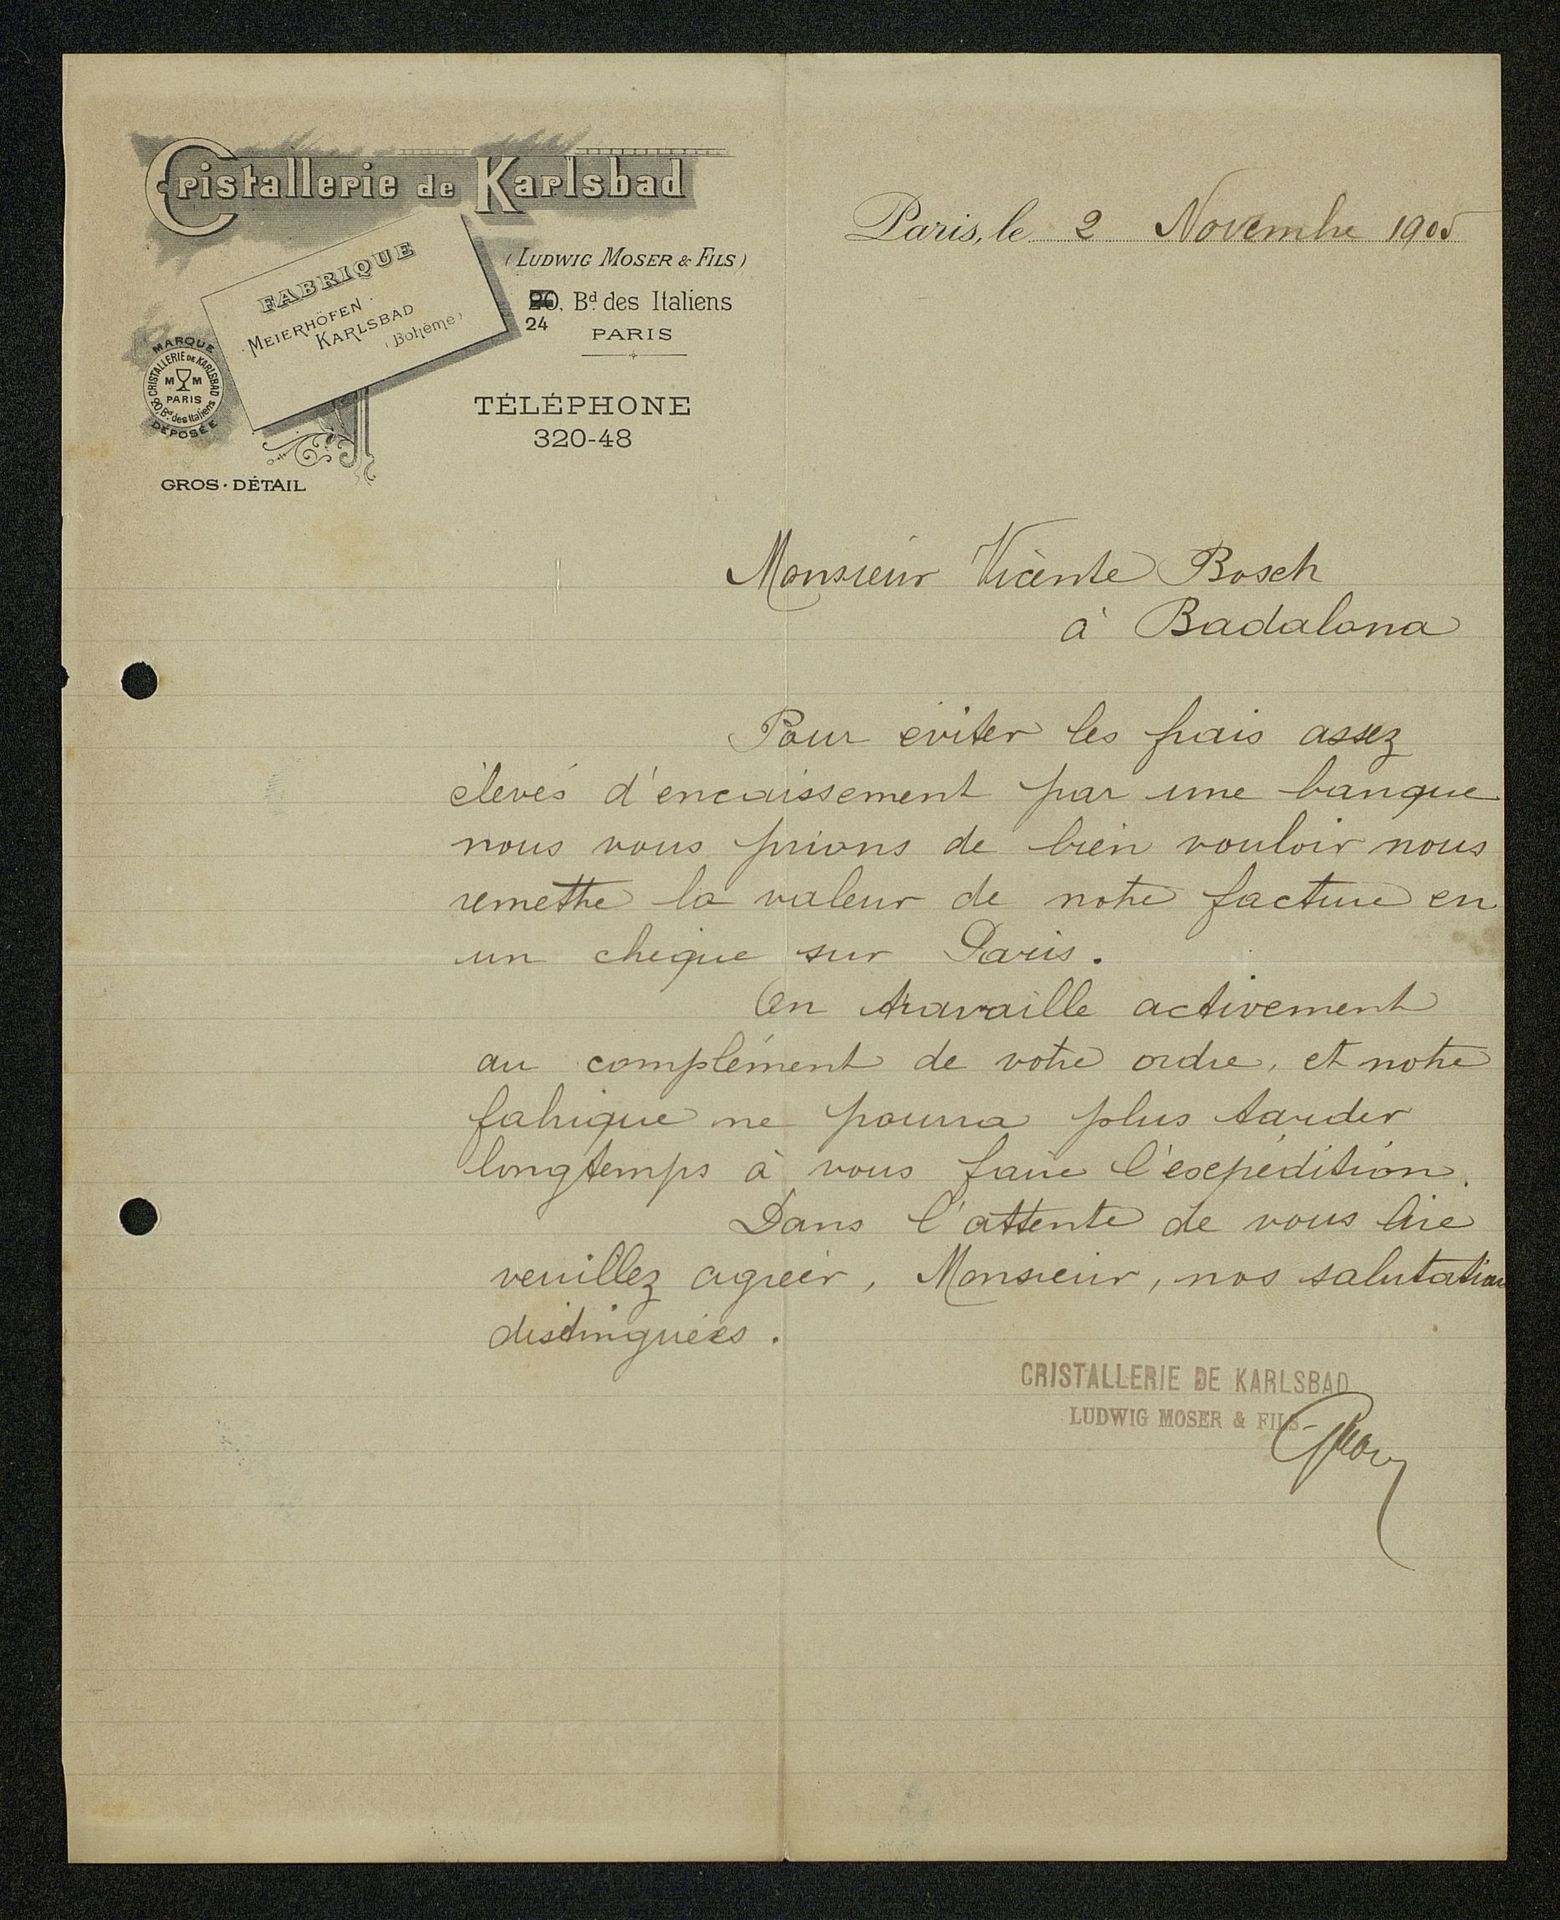 Cristallerie de Karlsbad
(LUDWIG MOSER & FILS)
20, Bd. des Italiens
24
PARIS
TÉLÉPHONE
320-48
FABRIQUE
MEIERHÖFEN
KARLSBAD
(Bohême)
MARQUE
CRISTALLERIE DE KARLSBAD
M M
PARIS
20, Bd. des Italiens
DÉPOSÉE
GROS · DÉTAIL
Paris, le 2 Novembre 1905
Monsieur Vicente Bosch
à Badalona
Pour eviter les frais assez
élevés d'encaissement par une banque
nous vous prions de bien vouloir nous
remettre la valeur de notre facture en
un cheque sur Paris.
On travaille activement
au complément de votre ordre, et notre
fabrique ne pourra plus tarder
longtemps à vous faire l'expédition.
Dans l'attente de vous lire
veuillez agréer, Monsieur, nos salutations
distinguées.
CRISTALLERIE DE KARLSBAD
LUDWIG MOSER & FILS